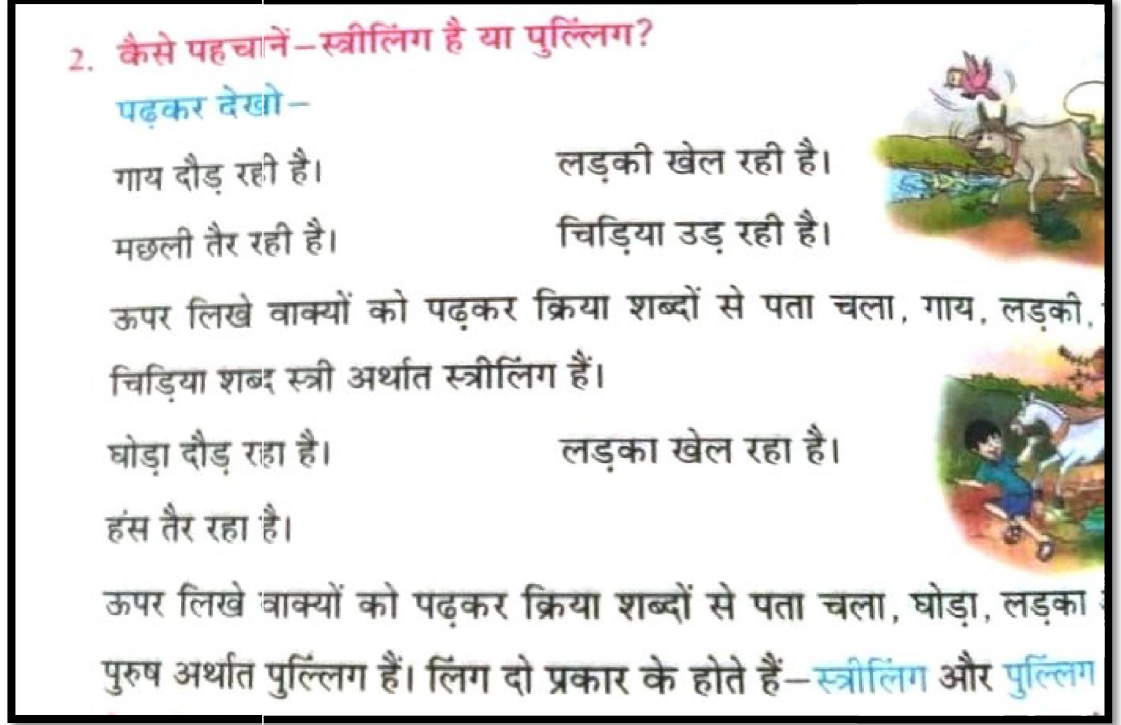 2. कैसे पहचानें–स्त्रीलिंग है या पुल्लिंग?
पढ़कर देखो–
गाय दौड़ रही है। लड़की खेल रही है।
मछली तैर रही है। चिड़िया उड़ रही है।
ऊपर लिखे वाक्यों को पढ़कर क्रिया शब्दों से पता चला, गाय, लड़की,
चिड़िया शब्द स्त्री अर्थात स्त्रीलिंग हैं।
घोड़ा दौड़ रहा है। लड़का खेल रहा है।
हंस तैर रहा है।
ऊपर लिखे वाक्यों को पढ़कर क्रिया शब्दों से पता चला, घोड़ा, लड़का
पुरुष अर्थात पुल्लिंग हैं। लिंग दो प्रकार के होते हैं–स्त्रीलिंग और पुल्लिंग